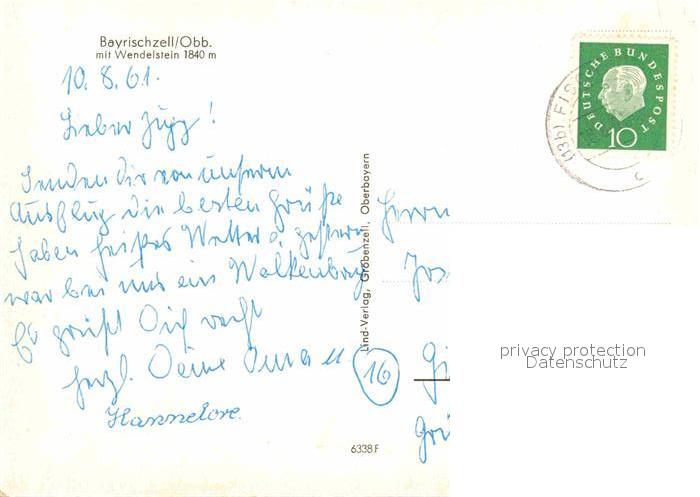 Bayrischzell/Obb.
mit Wendelstein 1840 m
10.8.61.
Lieber Jupp!
Senden Dir von unserm
Ausflug die besten Grüße
haben heißes Wetter u. gestern
war bei uns ein Wolkenbruch
Es grüßt Dich recht
herzl. Deine Oma u.
Hannelore.
Lind-Verlag, Gröbenzell, Oberbayern
6338 F
Herrn
Jos
16
DEUTSCHE BUNDESPOST
10
(13b) FIS
privacy protection
Datenschutz